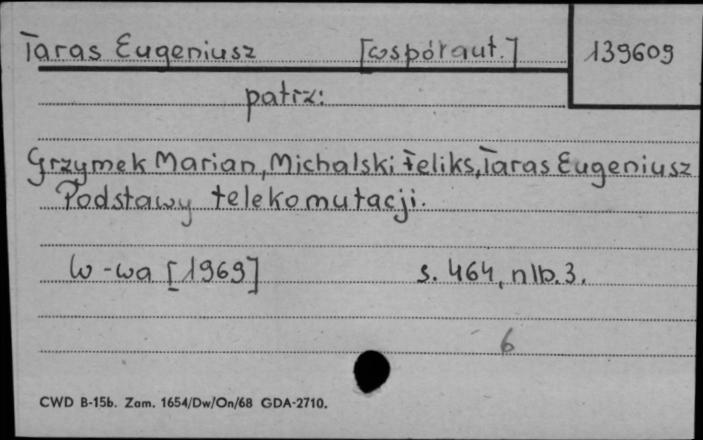 Taras Eugeniusz [współaut.] 139609
patrz:
Grzymek Marian, Michalski Feliks, Taras Eugeniusz
Podstawy telekomutacji.
W-wa [1969] s. 464, nlb. 3.
6
CWD B-15b. Zam. 1654/Dw/On/68 GDA-2710.